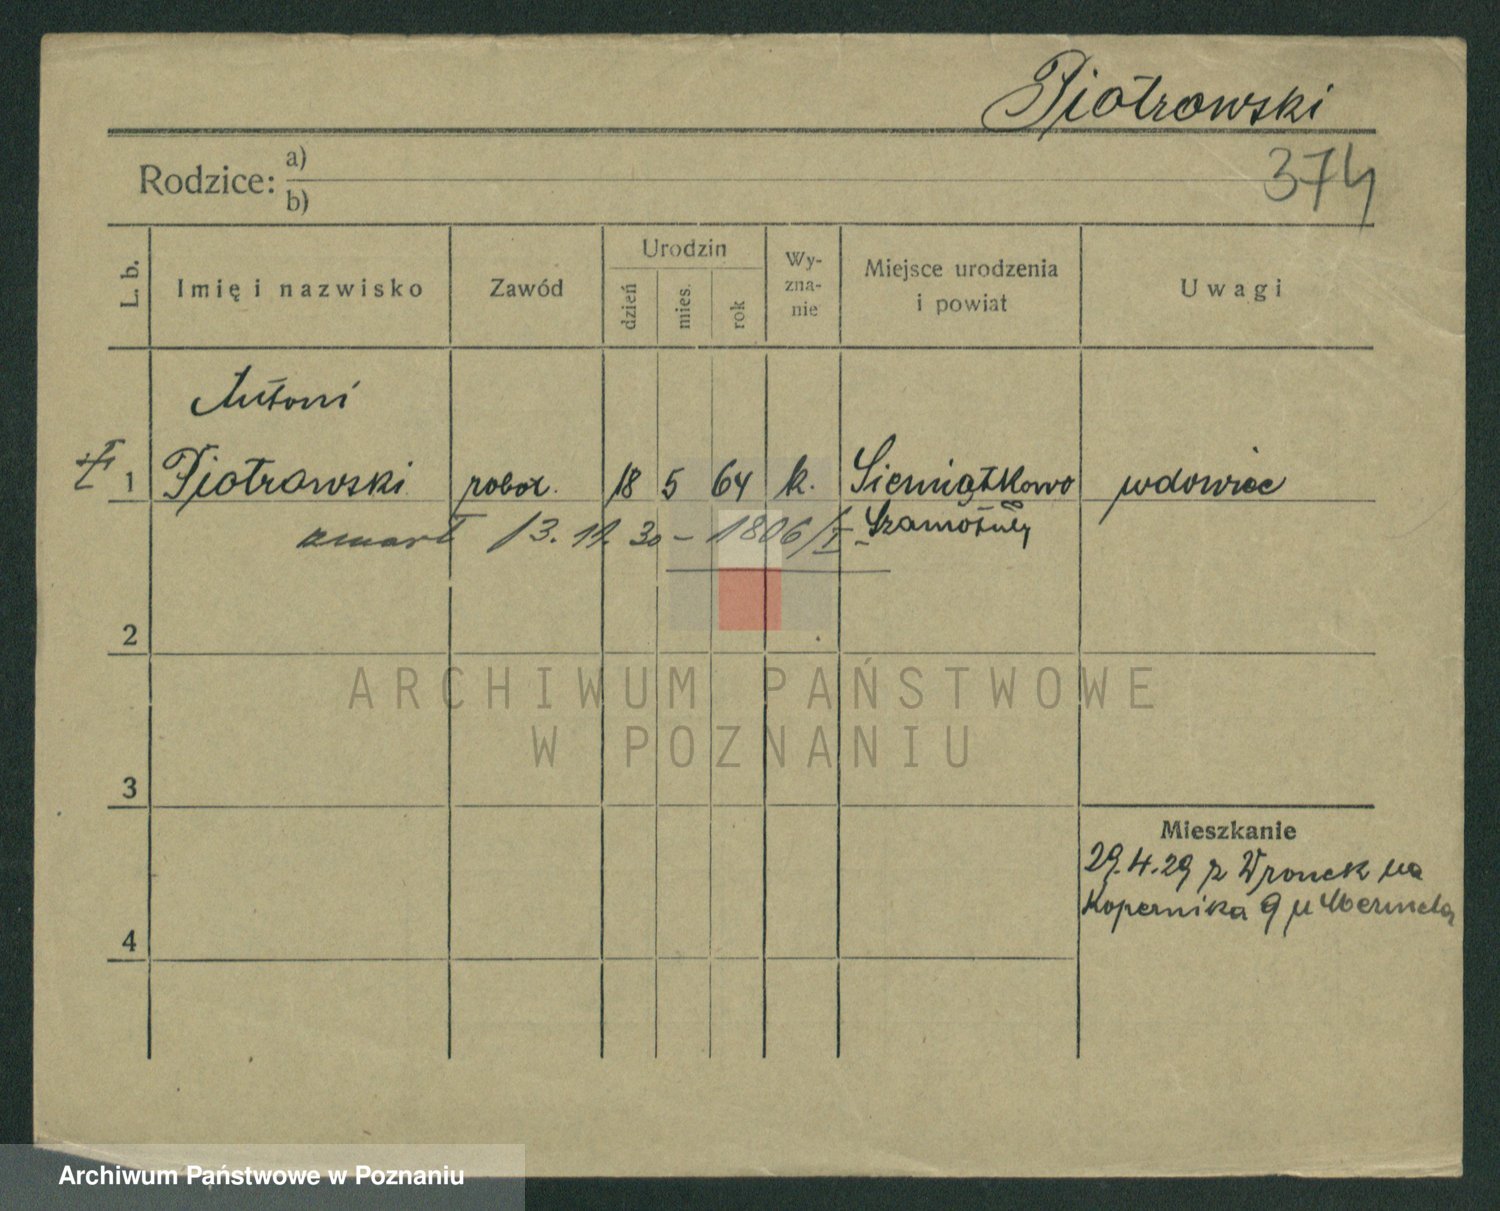 Piotrowski
374
Rodzice: a)
b)
L. b.
Imię i nazwisko
Zawód
Urodzin
dzień
mies.
rok
Wy-
zna-
nie
Miejsce urodzenia
i powiat
Uwagi
Antoni
1 Piotrowski robot. 18 5 64 k. Siemiątkowo wdowiec
zmarł 13. 11. 30 – 1806/I – Szamotuły
2
ARCHIWUM PAŃSTWOWE
W POZNANIU
3
Mieszkanie
29.4.29 z Wronek na
Kopernika 9 u
4
Archiwum Państwowe w Poznaniu